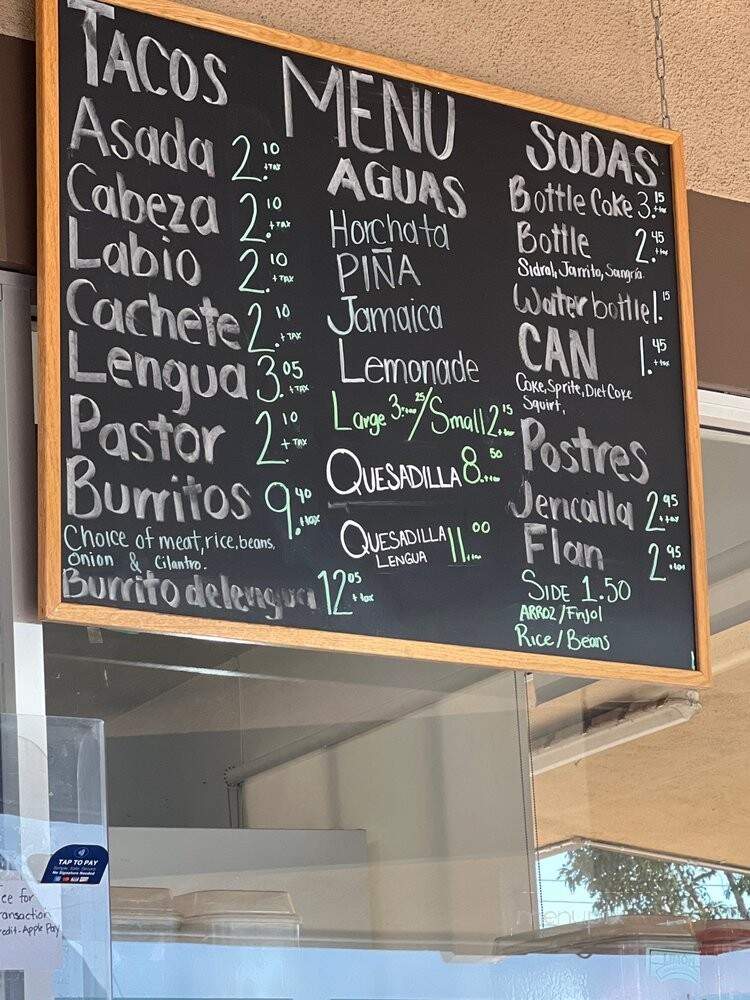 TACOS
Asada 2.10 + TAX
Cabeza 2.10 + TAX
Labio 2.10 + TAX
Cachete 2.10 + TAX
Lengua 3.05 + TAX
Pastor 2.10 + TAX
Burritos 9.40 + tax
Choice of meat, rice, beans.
Onion & Cilantro.
Burrito de lengua 12.05 + tax
MENU
AGUAS
Horchata
PIÑA
Jamaica
Lemonade
Large 3.25 / Small 2.15
QUESADILLA 8.50
QUESADILLA 11.00
LENGUA
SODAS
Bottle Coke 3.15
Bottle 2.45
Sidral, Jarrito, Sangria.
Water bottle 1.15
CAN 1.45
Coke, Sprite, Diet Coke
Squirt,
Postres
Jericalla 2.95 + tax
Flan 2.95
SIDE 1.50
ARROZ/Frijol
Rice/Beans
TAP TO PAY
No Signature Needed
ee for
ransaction
redit-Apple Pay